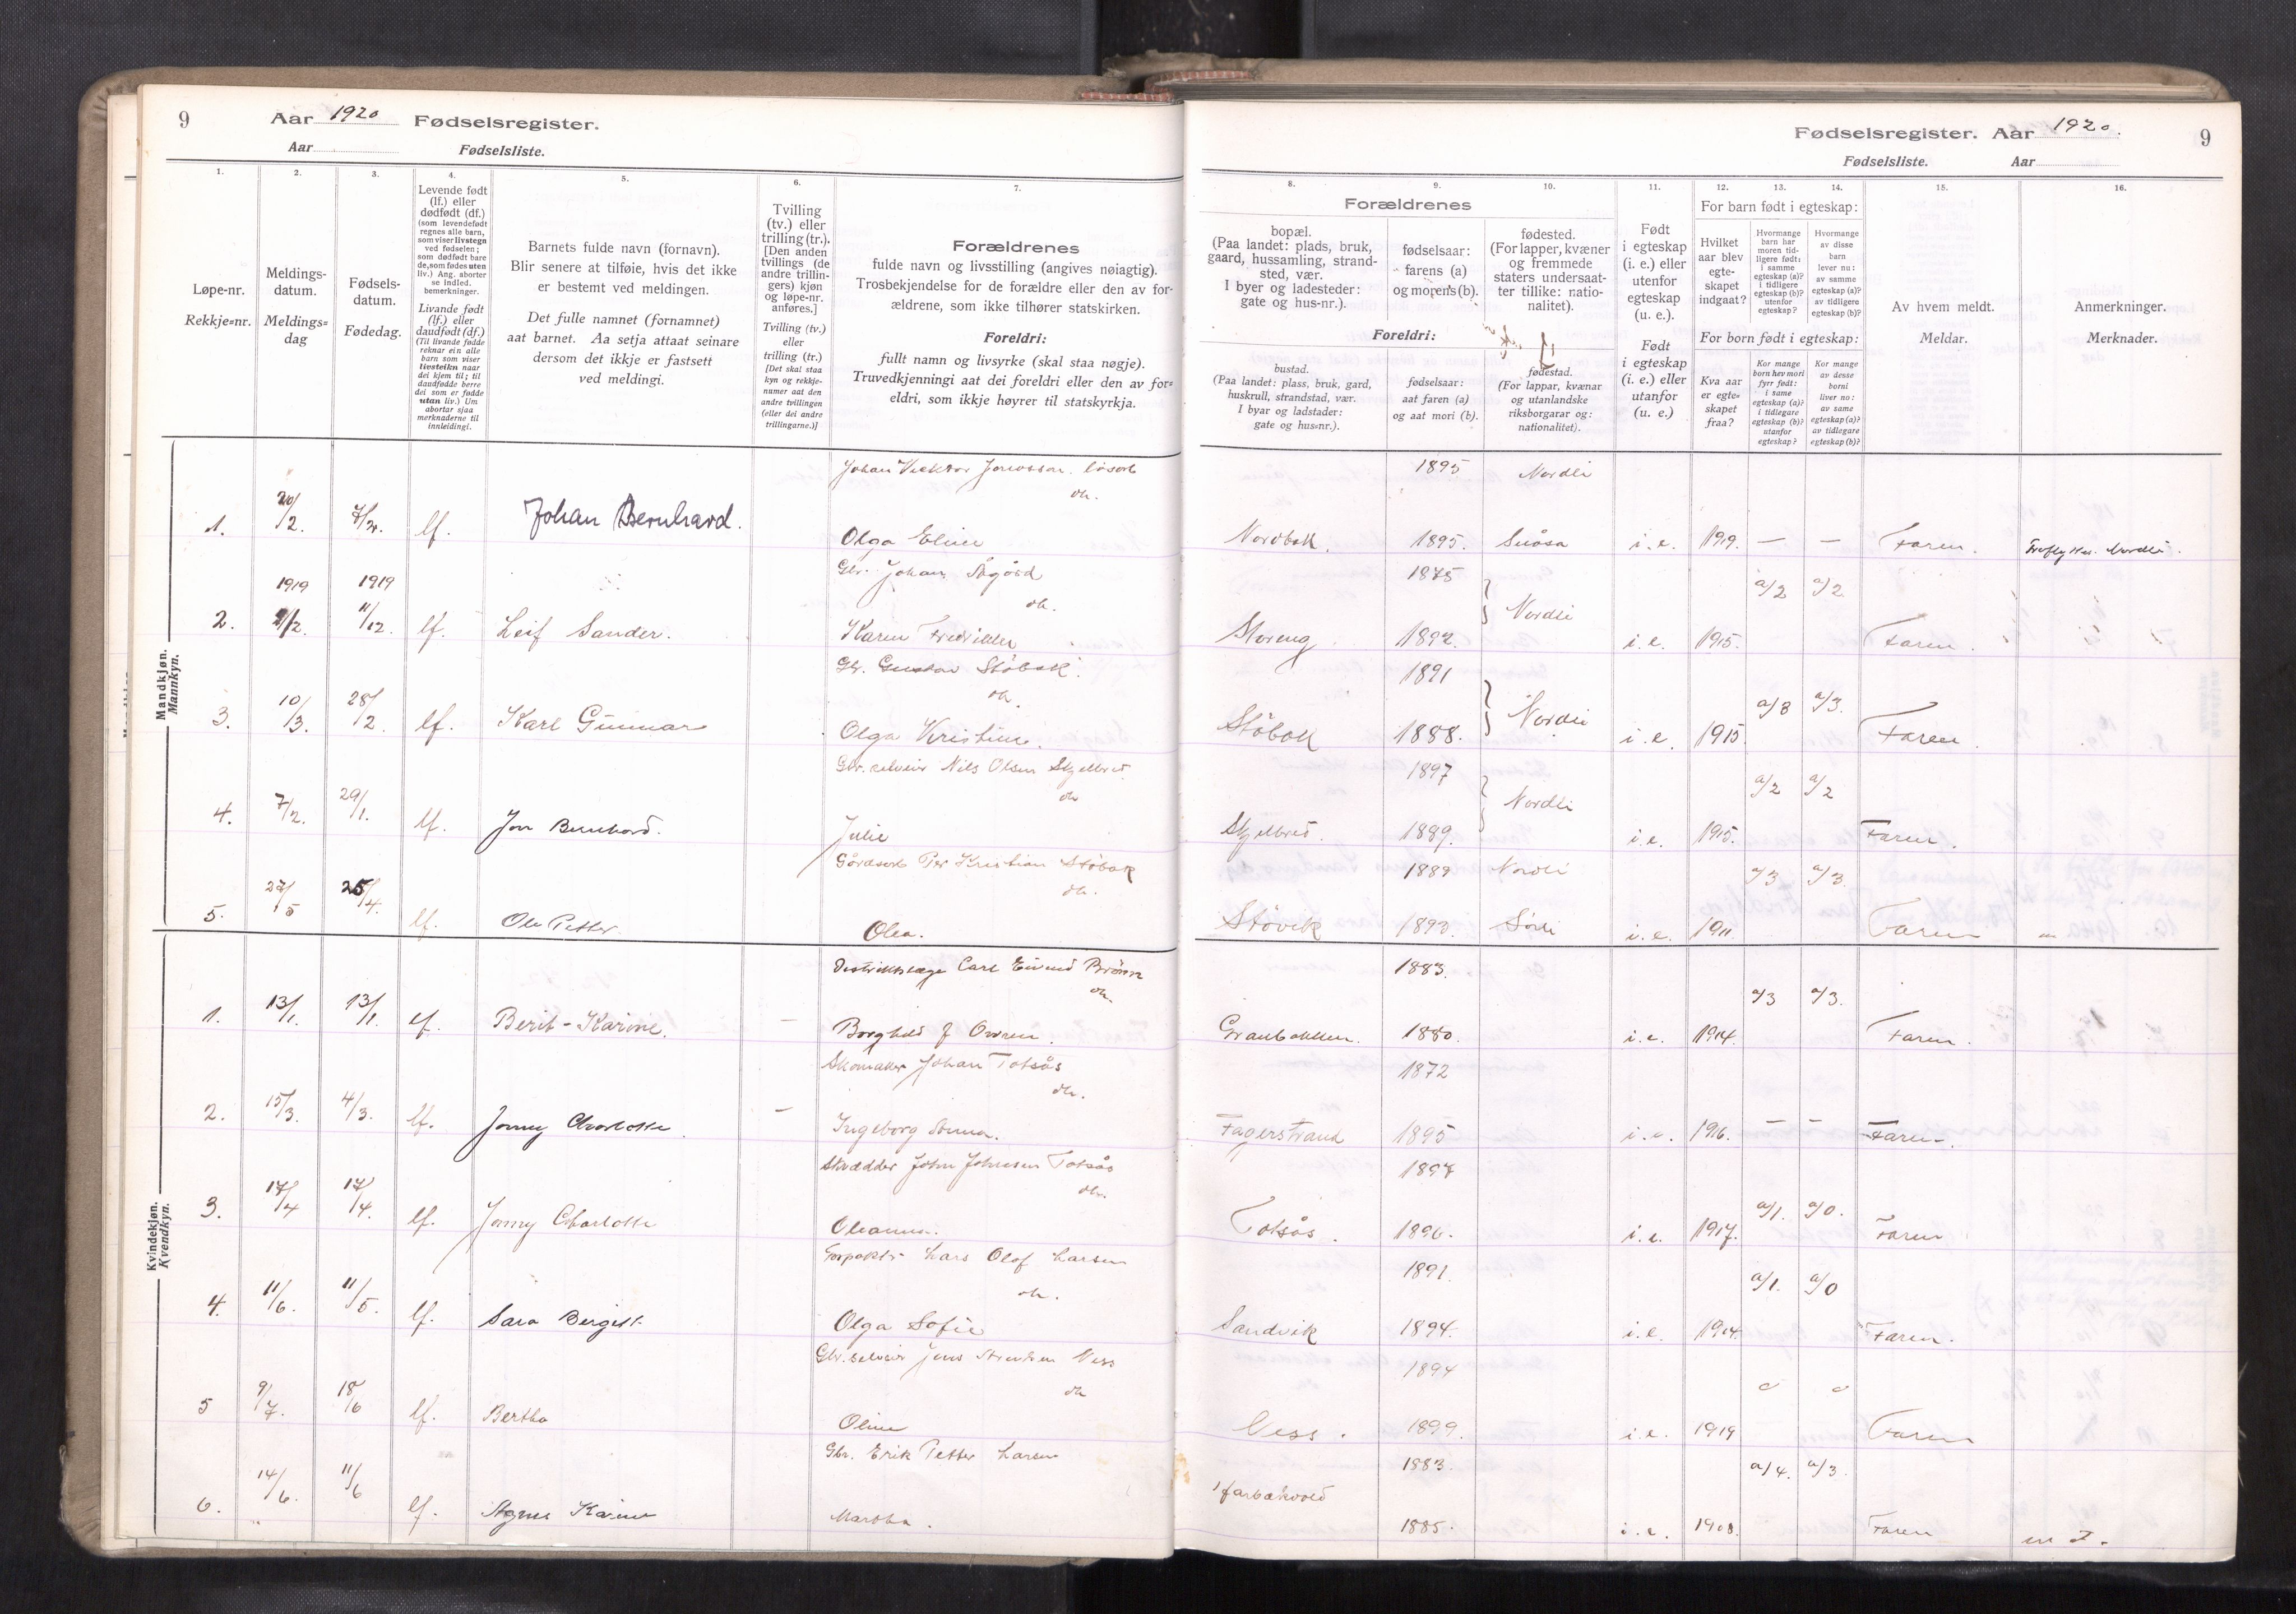 9
Aar 1920 Fødselsregister.
Aar Fødselsliste.
1. 2. 3. 4. 5. 6. 7.
Løpe-nr.
Rekkje=nr.
Meldings-
datum.
Meldings=
dag
Fødsels-
datum.
Fødedag.
Levende født
(lf.) eller
dødfødt (df.)
(som levendefødt
regnes alle barn,
som viser livstegn
ved fødselen;
som dødfødt bare
de, som fødes uten
liv.) Ang. aborter
se Indled.
bemerkninger.
Livande født
(lf.) eller
daudfødt (df.)
(Til livande fødde
reknar ein alle
barn som viser
livsteikn naar
dei kjem til; til
daudfødde berre
dei som er fødde
utan liv.) Um
abortar sjaa
merknaderne til
innleidingi.
Barnets fulde navn (fornavn).
Blir senere at tilføie, hvis det ikke
er bestemt ved meldingen.
Det fulle namnet (fornamnet)
aat barnet. Aa setja attaat seinare
dersom det ikkje er fastsett
ved meldingi.
Tvilling
(tv.) eller
trilling (tr.).
[Den anden
tvillings (de
andre trillin-
gers) kjøn
og løpe-nr.
anføres.]
Tvilling (tv.)
eller
trilling (tr.)
[Det skal staa
kyn og rekkje-
numer aat den
andre tvillingen
(eller dei andre
trillingarne.)]
Forældrenes
fulde navn og livsstilling (angives nøiagtig).
Trosbekjendelse for de forældre eller den av for-
ældrene, som ikke tilhører statskirken.
Foreldri:
fullt namn og livsyrke (skal staa nøgje).
Truvedkjenningi aat dei foreldri eller den av for=
eldri, som ikkje høyrer til statskyrkja.
Mandkjøn.
Mannkyn.
Johan Viektor
1. 20/2. 7/2. lf. Johan Bernhard.
Olga Eline
1919 1919 Gbr. Johan
2. 11/12. lf. Leif Sander.
Karen Fredrikke
Gbr. Gustav Støbak.
3. 10/3. 28/2. lf. Karl Gunnar
Olga Kristine.
Gbr. selveier Nils Olsen Skjelbred
4. 7/2. 29/1. lf. Jon Bernhard.
Julie
Gårdarb. Per Kristian Støbak
5. 27/5 25/4. lf. Ole Petter
Olea.
Kvindekjøn.
Kvendkyn.
Distriktslæge Carl Eivind
1. 13/1. 13/1. lf. Berit-Karine. —
Borghild f
Skomaker Johan Totsås
2. 15/3. 4/3. lf. Jonny Charlotte. —
Ingeborg
Skrædder John Johnsen Totsås
3. 17/4 17/4. lf. Jonny Charlotte
Oleanna.
Forpakter Lars Olof Larsen
4. 11/6. 11/5. lf. Sara Bergitt.
Olga Sofie
Gbr. selveier Jens
5 9/7. 18/6 lf. Bertha
Oline
Gbr. Erik Petter Larsen
6. 14/6. 11/6 lf. Agnes Karine
Martha.
Fødselsregister. Aar 1920. 9
Fødselsliste. Aar
8. 9. 10. 11. 12. 13. 14. 15. 16.
Forældrenes
bopæl.
(Paa landet: plads, bruk,
gaard, hussamling, strand-
sted, vær.
I byer og ladesteder:
gate og hus-nr.).
fødselsaar:
farens (a)
og morens (b).
fødested.
(For lapper, kvæner
og fremmede
staters undersaat-
ter tillike: natio-
nalitet).
Foreldri:
bustad.
(Paa landet: plass, bruk, gard,
huskrull, strandstad, vær.
I byar og ladstader:
gate og hus=nr.).
fødselsaar:
aat faren (a)
og aat mori (b).
fødestad.
(For lappar, kvænar
og utanlandske
riksborgarar og:
nationalitet).
Født
i egteskap
(i. e.) eller
utenfor
egteskap
(u. e.).
Født
i egteskap
(i. e.) eller
utanfor
(u. e.)
For barn født i egteskap:
Hvilket
aar blev
egte-
skapet
indgaat?
Hvormange
barn har
moren tid-
ligere født:
i samme
egteskap (a)?
i tidligere
egteskap (b)?
utenfor
egteskap?
Hvormange
av disse
barn
lever nu:
av samme
egteskap (a)?
av tidligere
egteskap (b)?
For born født i egteskap:
Kva aar
er egte=
skapet
fraa?
Kor mange
born hev mori
fyrr født:
i same
egteskap (a)?
i tidlegare
egteskap (b)?
utanfor
egteskap?
Kor mange
av desse
borni
liver no:
av same
egteskap (a)?
av tidlegare
egteskap (b)?
Av hvem meldt.
Meldar.
Anmerkninger.
Merknader.
1895 Nordli
Nordbak. 1895. Snåsa i. e. 1919. — — Faren. Nordli.
1875 a/2 a/2.
Nordli
Storeng 1892. i. e. 1915. Faren.
1891 a/3 a/3.
Nordli
Støbak 1888. i. e. 1915. Faren.
1897 a/2 a/2
Nordli
Skjelbred. 1889. i. e. 1915. Faren.
1889 Nordli a/3 a/3.
Støvik 1893. Sørli i. e. 1911. Faren
1883. a/3 a/3.
Granbakken. 1880. i. e. 1914. Faren.
1872
Fagerstrand 1895 i. e. 1916. — — Faren.
1897 a/1. a/0.
Totsås. 1896. i. e. 1917. Faren
1891. a/1. a/0
Sandvik 1894. i. e. 1914. Faren.
1894
Vess. 1899. i. e. 1919 Faren
1883. a/4. a/3.
1885. i. e. 1908. Faren